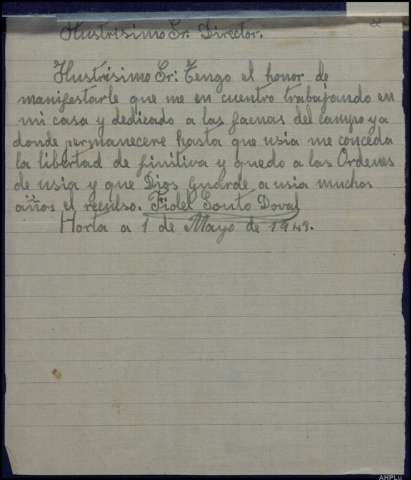 Ilustrisimo Sr. Director.
Ilustrisimo Sr: Tengo el honor de
manifestarle que me en cuentro trabajando en
mi casa y dedicado a las faenas del campo ya
donde permanecere hasta que usia me conceda
la libertad de finitiva y quedo a las Ordenes
de usia y que Dios Guarde a usia muchos
años el recluso. Fidel Souto Doval
Horta a 1 de Mayo de 1943.
AHPLu